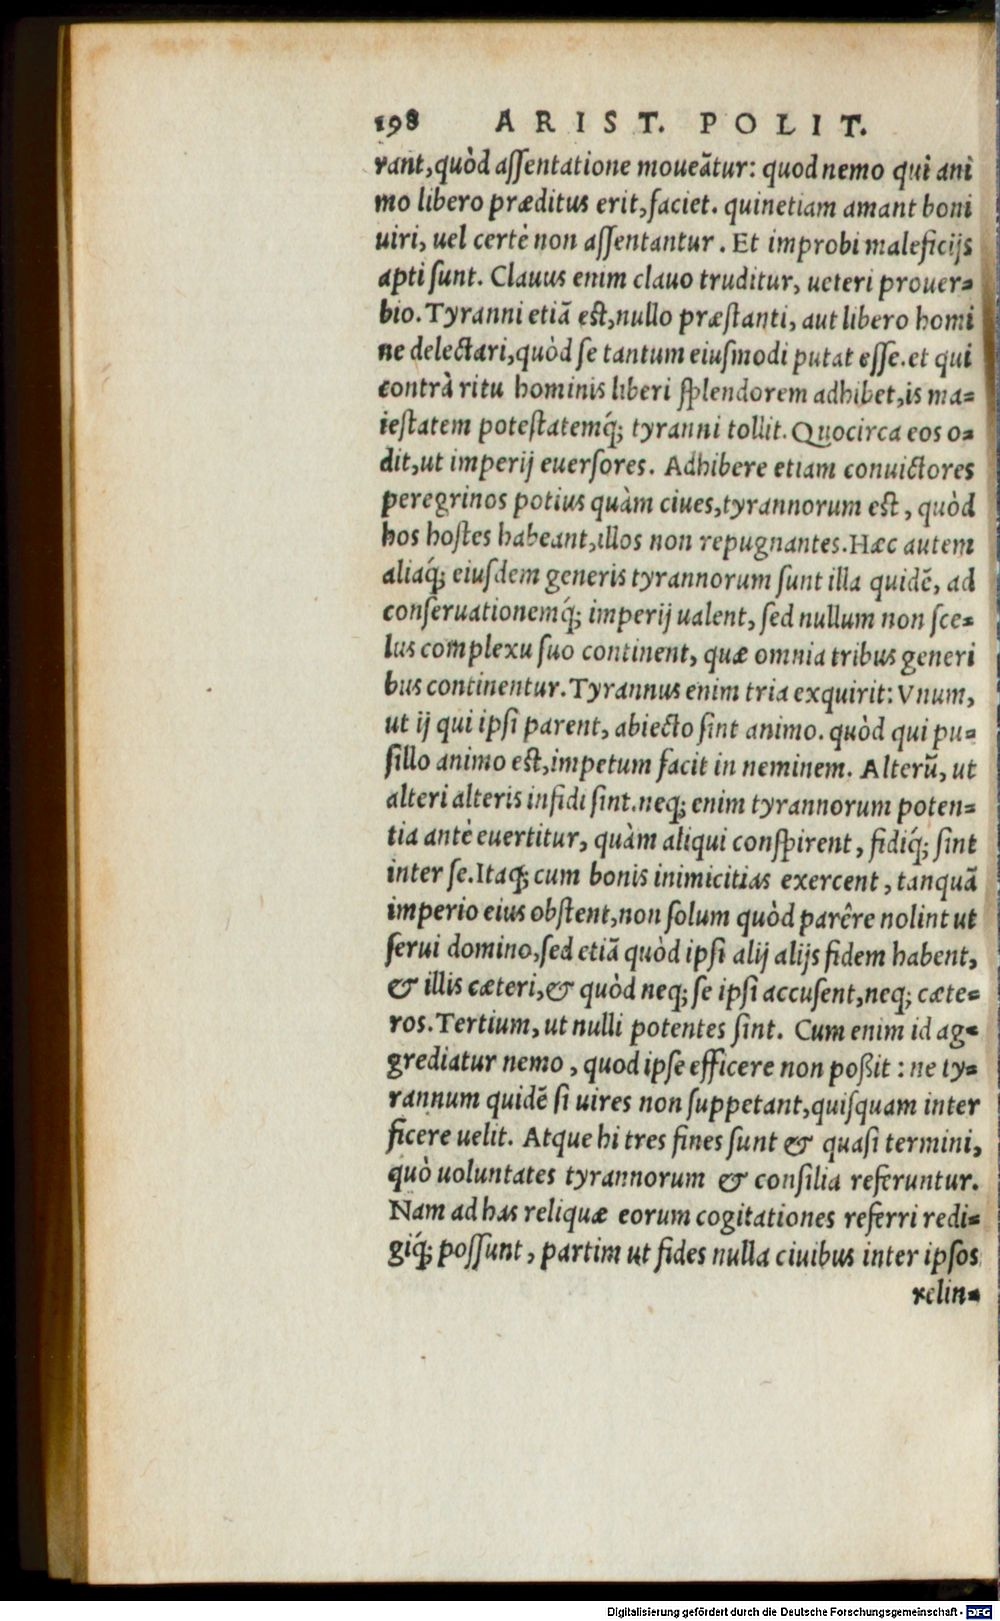 198 ARIST. POLIT.
rant,quòd assentatione moueātur: quod nemo qui ani
mo libero præditus erit,faciet. quinetiam amant boni
uiri, uel certè non assentantur . Et improbi maleficijs
apti sunt. Clauus enim clauo truditur, ueteri prouer=
bio. Tyranni etiā est,nullo præstanti, aut libero homi
ne delectari,quòd se tantum eiusmodi putat esse. et qui
contrà ritu hominis liberi splendorem adhibet,is ma=
iestatem potestatemq́; tyranni tollit. Quocirca eos o=
dit,ut imperij euersores. Adhibere etiam conuictores
peregrinos potius quàm ciues,tyrannorum est , quòd
hos hostes habeant,illos non repugnantes. Hæc autem
aliaq́; eiusdem generis tyrannorum sunt illa quidē, ad
conseruationemq́; imperij ualent, sed nullum non sce=
lus complexu suo continent, quæ omnia tribus generi
bus continentur. Tyrannus enim tria exquirit: Vnum,
ut ij qui ipsi parent, abiecto sint animo. quòd qui pu=
sillo animo est,impetum facit in neminem. Alterū, ut
alteri alteris infidi sint. neq; enim tyrannorum poten=
tia antè euertitur, quàm aliqui conspirent , fidiq́; sint
inter se. Itaq; cum bonis inimicitias exercent , tanquā
imperio eius obstent,non solum quòd parêre nolint ut
serui domino,sed etiā quòd ipsi alij alijs fidem habent,
& illis cæteri,& quòd neq; se ipsi accusent,neq; cæte=
ros. Tertium, ut nulli potentes sint. Cum enim id ag=
grediatur nemo , quod ipse efficere non poßit : ne ty=
rannum quidē si uires non suppetant,quisquam inter
ficere uelit. Atque hi tres fines sunt & quasi termini,
quò uoluntates tyrannorum & consilia referuntur.
Nam ad has reliquæ eorum cogitationes referri redi=
giq́; possunt , partim ut fides nulla ciuibus inter ipsos
relin=
Digitalisierung gefördert durch die Deutsche Forschungsgemeinschaft - DFG